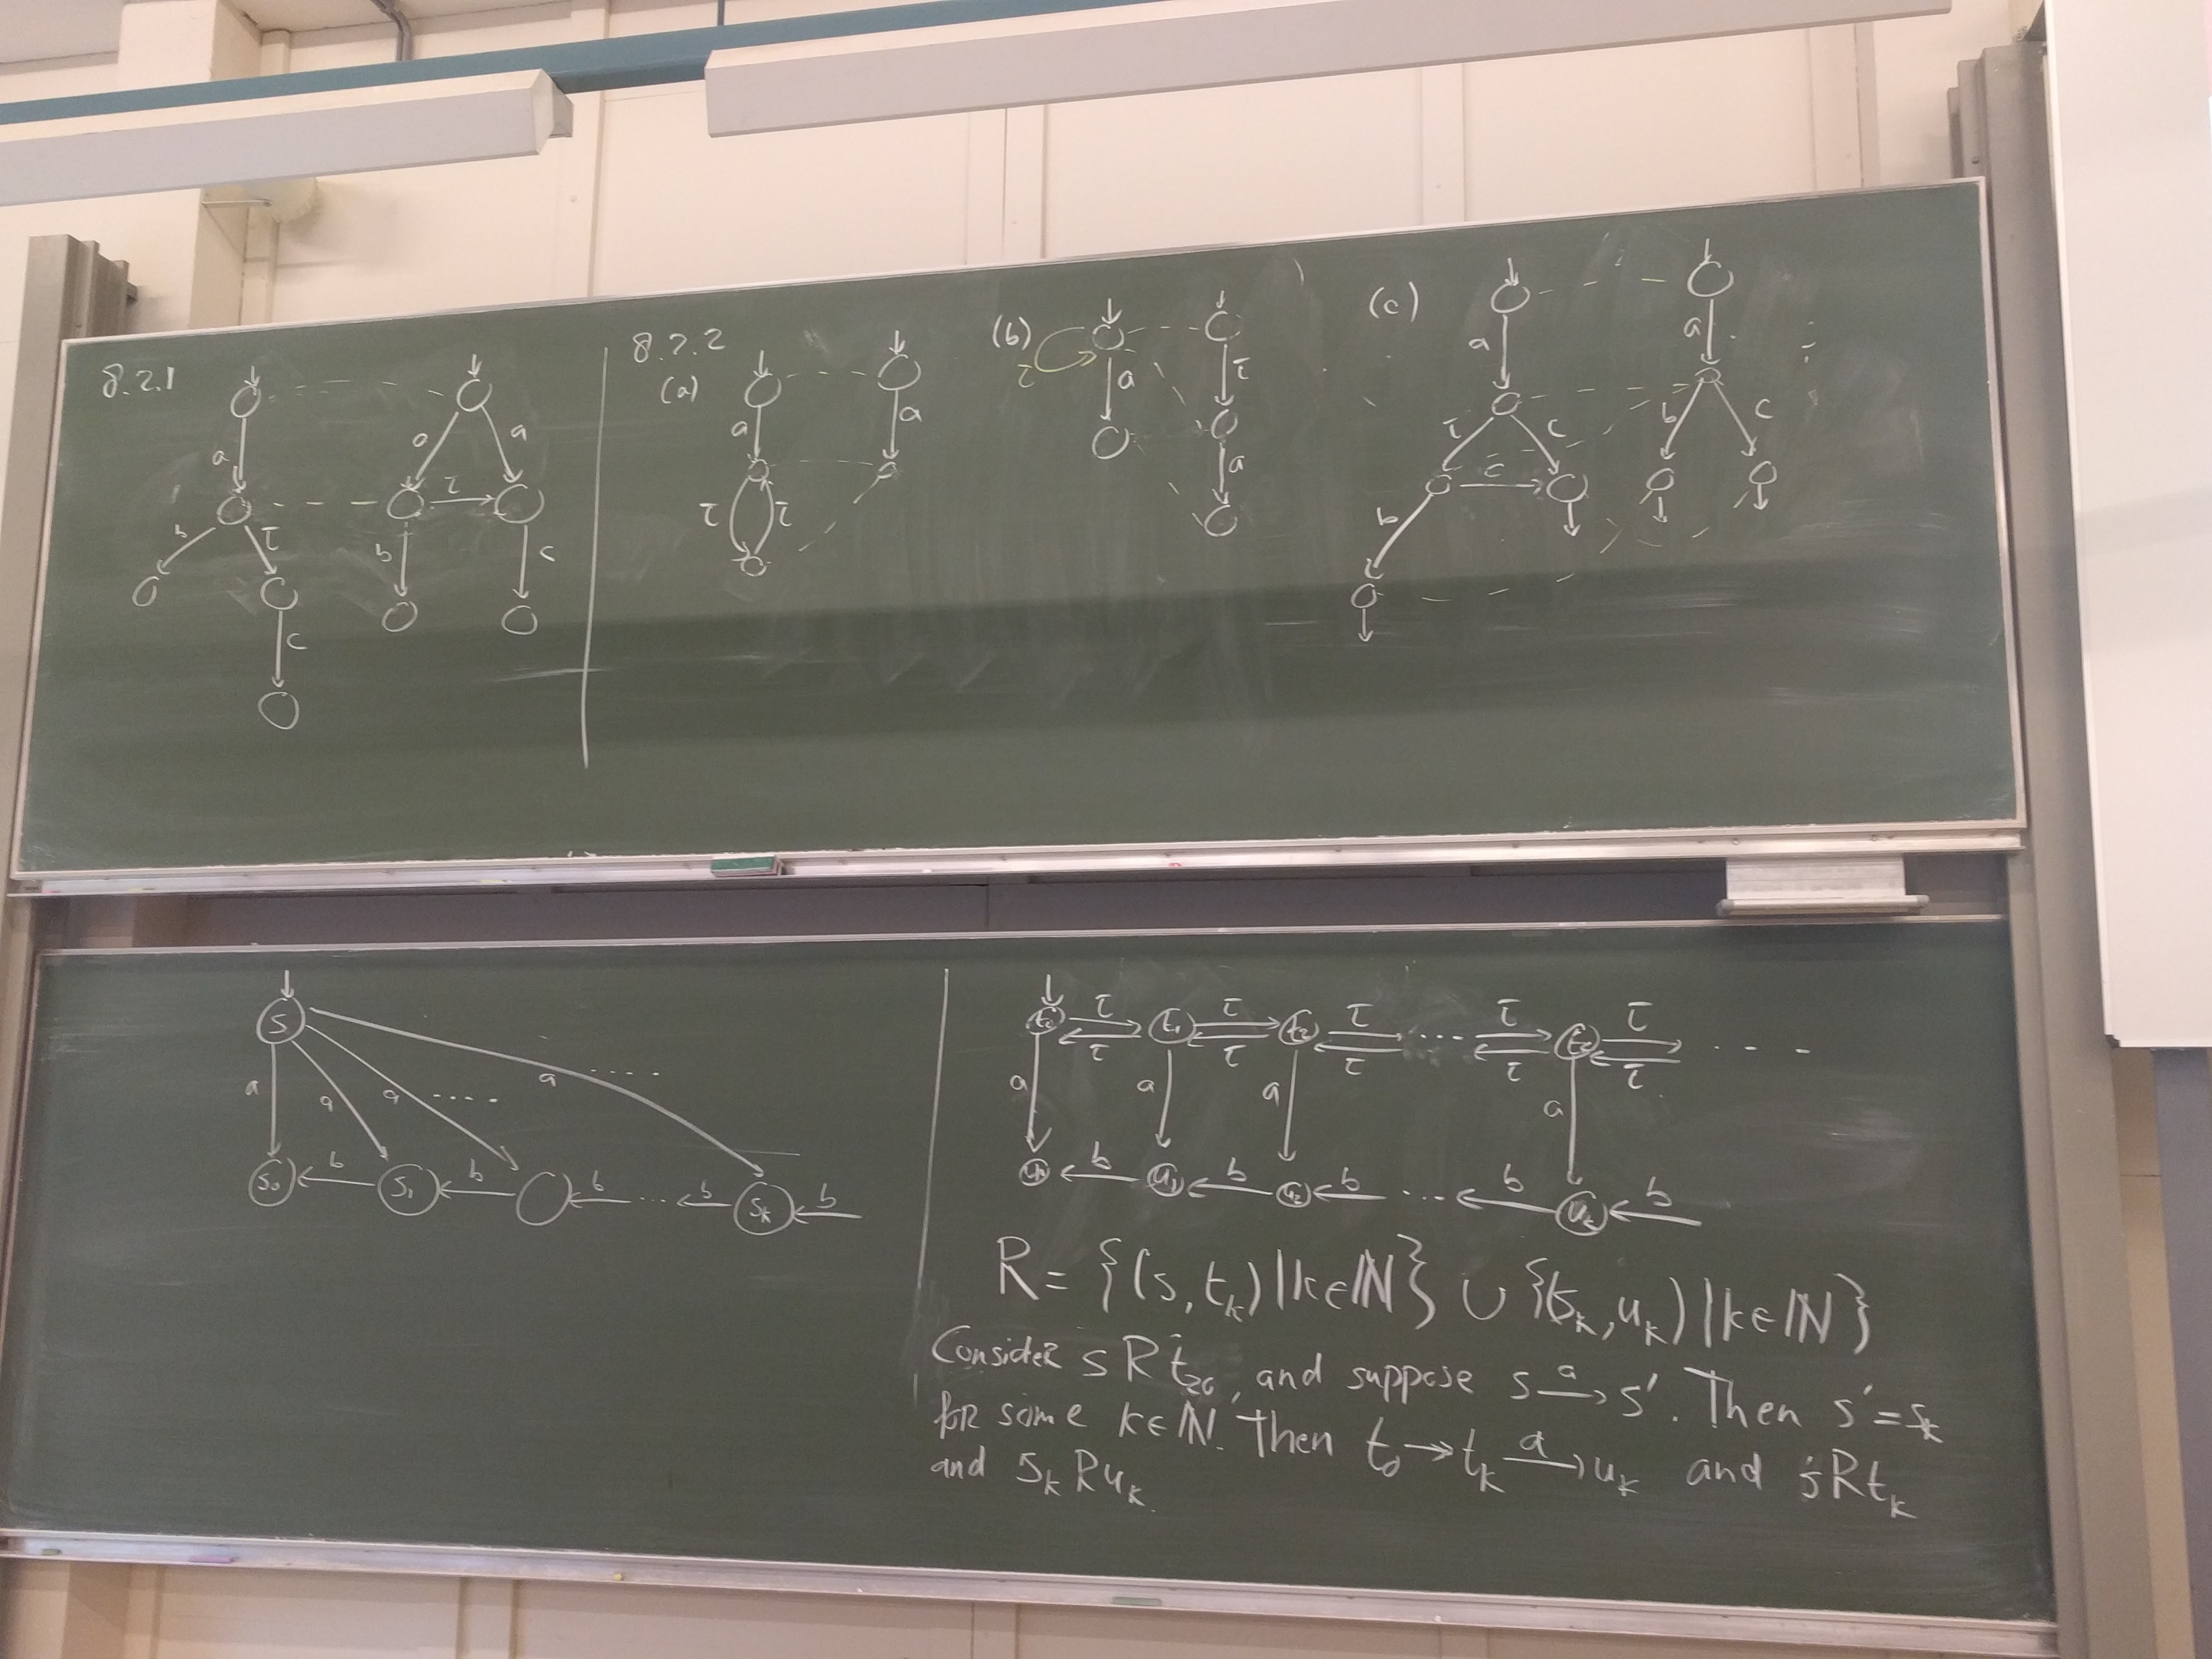 8.2.1
a
b
τ
c
a
a
τ
b
c
8.2.2
(a)
a
τ
τ
a
(b)
τ
a
τ
a
(c)
a
τ
c
c
b
a
b
c
s
a
a
a
....
a
.....
s₀
b
s₁
b
b
...
b
sₖ
b
t₀
τ
τ
t₁
τ
τ
t₂
τ
τ
...
τ
τ
τ
τ
....
a
a
a
a
b
u₁
b
u₂
b
...
b
uₖ
b
R = {(s, tₖ) | k ∈ ℕ} ∪ {(sₖ, uₖ) | k ∈ ℕ}
Consider s R, and suppose s –a→ s'. Then s' = sₖ
for some k ∈ ℕ. Then t₀ ↠ tₖ –a→ uₖ and s R tₖ
and sₖ R uₖ.